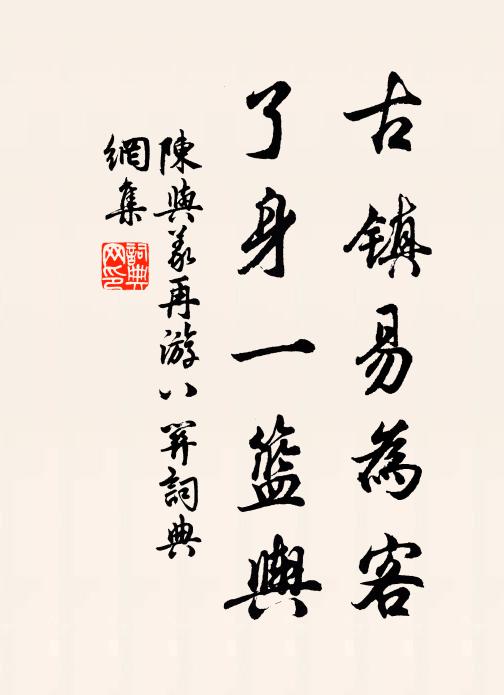 古鎮易為客
了身一籃輿
陳與義再游八關詞典
網集
詞典網印